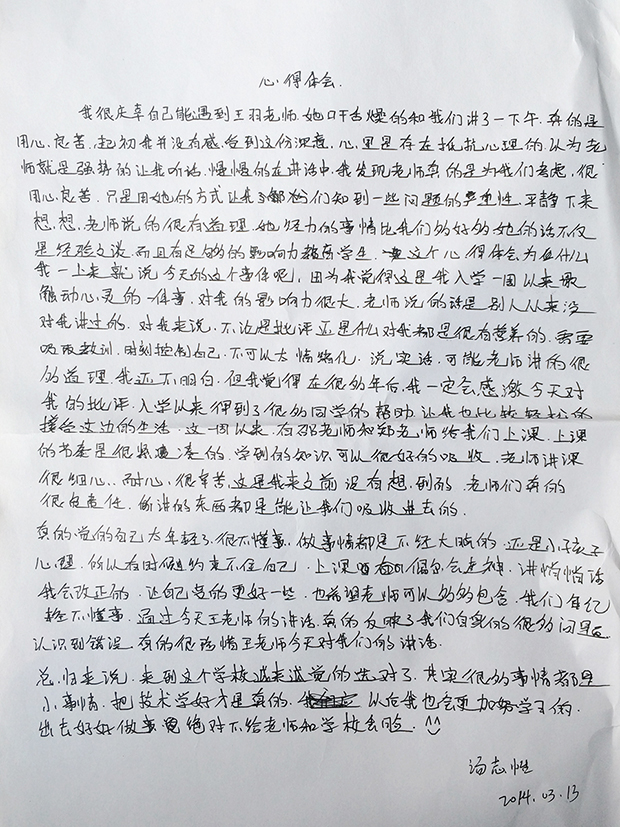 心得体会.
我很庆幸自己能遇到王羽老师.她口干舌燥的和我们讲了一下午.真的是
用心.良苦.起初我并没有感受到这份深意.心里是存在抵抗心理的.认为老
师就是强势的让我听话.慢慢的在讲话中.我发现老师真的是为我们考虑.很
用心.良苦.只是用她的方式让我们知到一些问题的严重性.平静下来
想.想.老师说的很有道理.她经力的事情比我们多的多的她的话不仅
是经验之谈.而且有足够的影响力教育学生.这个心得体会为什么
我一上来就说今天的这个事件呢.因为我觉得这是我入学一周以来最
触动心灵的一件事.对我的影响力很大.老师说的话是别人从来没
对我讲过的.对我来说.不论是批评还是什么对我都是很有营养的.需要
吸取教训.时刻控制自己.不可以太情绪化.说实话.可能老师讲的很
多道理.我还不明白.但我觉得在很多年后.我一定会感激今天对
我的批评.入学以来得到了很多同学的帮助.让我也比较轻松的
接给这边的生活.这一周以来.有邵老师和郑老师给我们上课.上课
的节奏是很紧凑的.学到的知识可以很好的吸收.老师讲课
很细心..耐心.很辛苦.这是我来之前没有想到的.老师们真的
很负责任.所讲的东西都是能让我们吸收进去的.
真的觉的自己太年轻了.很不懂事.做事情都是不经大脑的.还是小孩子
心理.所以有时候约束不住自己.上课偶尔会走神.讲悄悄话
我会改正的.让自己变的更好一些.也希望老师可以多多的包含.我们年纪
轻不懂事.通过今天王老师的讲话.真的反映了我们自身的很多问题
认识到错误.真的很珍惜王老师今天对我们的讲话.
总.归来说.来到这个学校越来越觉的选对了.其实很多事情都是
小事情.把技术学好才是真的.以后我也会更加努学习的.
出去好好做事.绝对不给老师和学校丢脸.
汤志
2014.03.13